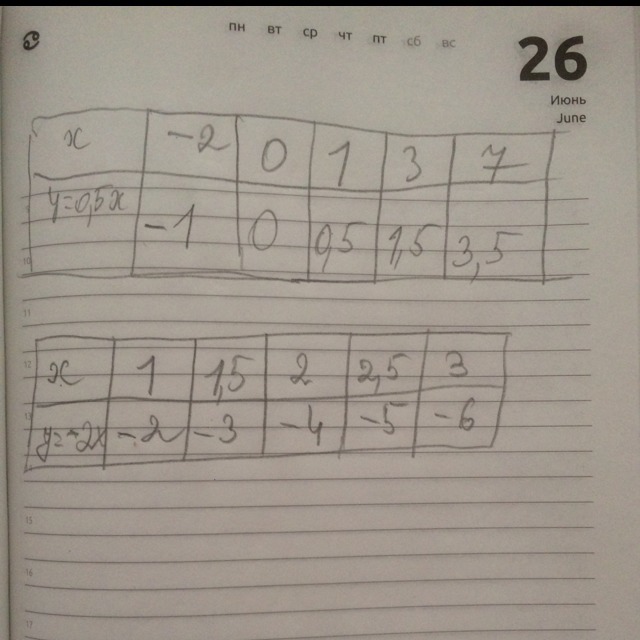 пн вт ср чт пт сб вс
26
Июнь
June
x -2 0 1 3 7
y=0,5x -1 0 0,5 1,5 3,5
10
11
12
x 1 1,5 2 2,5 3
y=-2x -2 -3 -4 -5 -6
15
16
17